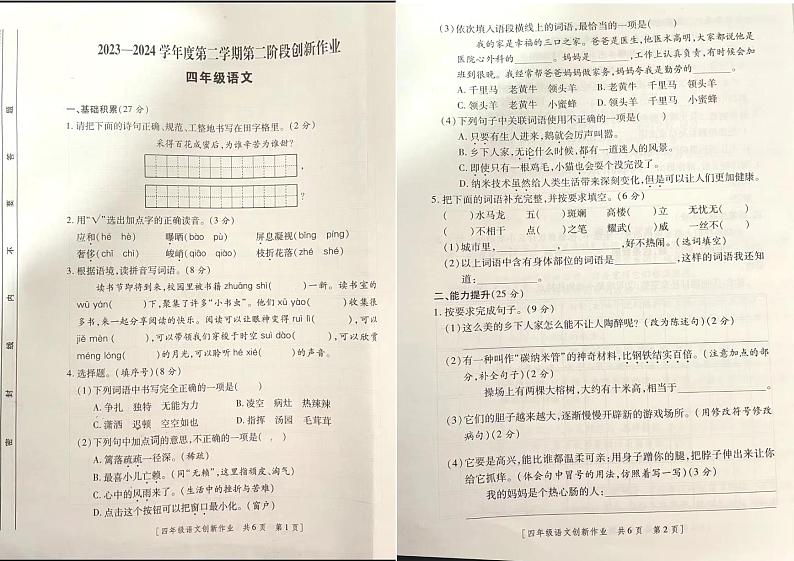 2023—2024学年度第二学期第二阶段创新作业
四年级语文
一、基础积累(27分)
1. 请把下面的诗句正确、规范、工整地书写在田字格里。(2分)
采得百花成蜜后,为谁辛苦为谁甜?
,
?
2. 用“√”选出加点字的正确读音。(3分)
应和(hé hè) 曝晒(bào pù) 屏息凝视(bǐng píng)
奢侈(chǐ chì) 峻峭(qiào qiào) 枝折花落(zhé shé)
3. 根据语境,读拼音写词语。(8分)
读书节即将到来,校园里被书籍zhuāng shì( )一新。读书室的
wū yán( )下,聚集了许多“小书虫”。他们xū yào( )收集很
多书,来一起分享阅读的快乐。阅读可以让眼神变得ruì lì( ),可以
jiě mèn( ),可以带领我们穿梭于时空suì dào( ),可以欣赏
méng lóng( )的月光,可以聆听hé xié( )的声音。
4. 选择题。(填序号)(8分)
(1)下列词语中书写完全正确的一项是( )
A. 争扎 独特 无能为力 B. 凌空 病灶 热辣辣
C. 潇洒 迟顿 空空如也 D. 指挥 汤园 毛茸茸
(2)下列句中加点词的意思,不正确的一项是( )
A. 篱落疏疏一径深。(稀疏)
B. 最喜小儿亡赖。(同“无赖”,这里指顽皮、淘气)
C. 心中的风雨来了。(生活中的挫折与苦难)
D. 点击这个按钮可以把窗口最小化。(窗户)
[四年级语文创新作业 共6页 第1页]
密 封 线 内 不 要 答 题
(3)依次填入语段横线上的词语,最恰当的一项是( )
我的家是幸福的三口之家。爸爸是医生,他医术高明,大家都说他是
医院心外科的________。妈妈是________,工作上认真负责,有时候会加
班到很晚。我经常帮爸爸妈妈做家务,妈妈夸我是勤劳的________。
A. 千里马 老黄牛 领头羊 B. 老黄牛 千里马 领头羊
C. 领头羊 老黄牛 小蜜蜂 D. 领头羊 千里马 小蜜蜂
(4)下列句子中关联词语使用不正确的一项是( )
A. 只要有生人进来,鹅就会厉声叫嚣。
B. 乡下人家,无论什么时候,都有一道迷人的风景。
C. 即使只有一根鸡毛,小猫也会耍个没完没了。
D. 纳米技术虽然给人类生活带来深刻变化,但是可以让人们更加健康。
5. 把下面的词语补充完整,并按要求填空。(6分)
( )水马龙 五( )斑斓 高楼( )立 无忧无( )
( )不相干 点( )之笔 耀武( )威 一丝不( )
(1)城市里,________,________,好不热闹。(选词填空)
(2)以上词语中含有身体部位的词语是________,这样的词语我还知
道:________。
二、能力提升(25分)
1. 按要求完成句子。(9分)
(1)这么美的乡下人家怎么能不让人陶醉呢?(改为陈述句)(2分)
(2)有一种叫作“碳纳米管”的神奇材料,比钢铁结实百倍。(注意加点的部
分,补全句子)(2分)
操场上有两棵大榕树,大约有十米高,相当于________。
(3)它们的胆子越来越大,逐渐慢慢开辟新的游戏场所。(用修改符号修改
病句)(2分)
(4)它要是高兴,能比谁都温柔可亲:用身子蹭你的腿,把脖子伸出来让你
给它抓痒。(体会句中冒号的用法,仿照着写一写)(3分)
我的妈妈是个热心肠的人:________
[四年级语文创新作业 共6页 第2页]